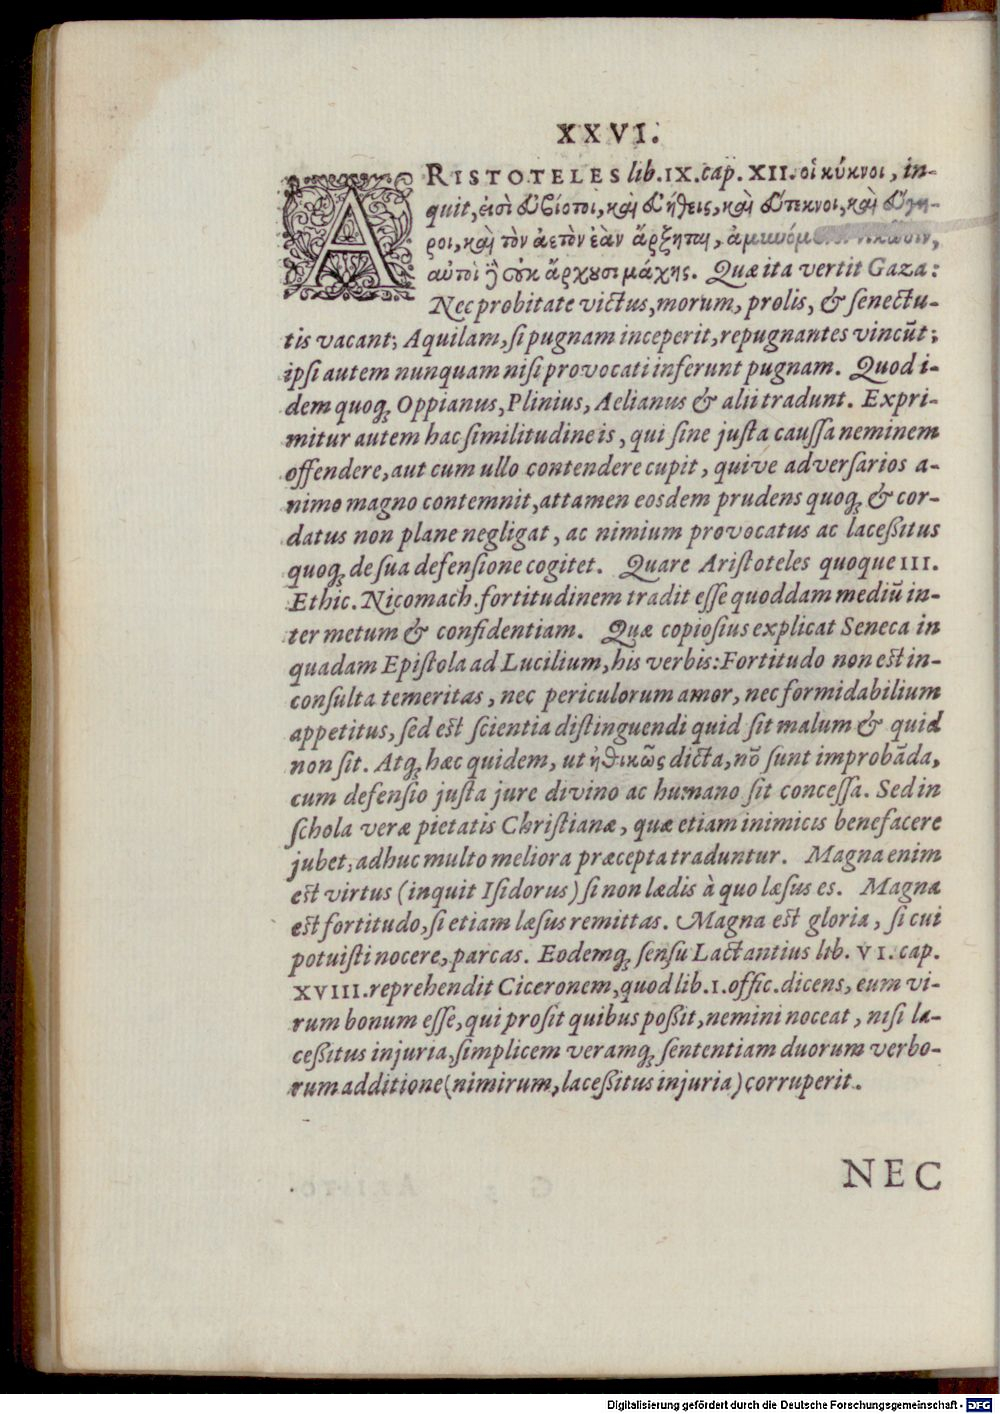 XXVI.
ARISTOTELES lib. IX. cap. XII. οἱ κύκνοι, in-
quit, εἰσὶ εὐβίοτοι, καὶ εὐήθεις, καὶ εὔτεκνοι, καὶ εὔγη-
ροι, καὶ τὸν ἀετὸν ἐὰν ἄρξηται,
αὐτοὶ δὲ οὐκ ἄρχουσι μάχης. Quæ ita vertit Gaza:
Nec probitate victus, morum, prolis, & ſenectu-
tis vacant; Aquilam, ſi pugnam inceperit, repugnantes vincūt;
ipſi autem nunquam niſi provocati inferunt pugnam. Quod i-
dem quoq; Oppianus, Plinius, Aelianus & alii tradunt. Expri-
mitur autem hac ſimilitudine is, qui ſine juſta cauſſa neminem
offendere, aut cum ullo contendere cupit, quive adverſarios a-
nimo magno contemnit, attamen eosdem prudens quoq; & cor-
datus non plane negligat, ac nimium provocatus ac laceßitus
quoq; de ſua defenſione cogitet. Quare Ariſtoteles quoque III.
Ethic. Nicomach. fortitudinem tradit eſſe quoddam mediū in-
ter metum & confidentiam. Quæ copioſius explicat Seneca in
quadam Epiſtola ad Lucilium, his verbis: Fortitudo non est in-
conſulta temeritas, nec periculorum amor, nec formidabilium
appetitus, ſed est ſcientia diſtinguendi quid ſit malum & quid
non ſit. Atq; hæc quidem, ut ἠθικῶς dicta, nō ſunt improbāda,
cum defenſio juſta jure divino ac humano ſit conceſſa. Sed in
ſchola veræ pietatis Chriſtianæ, quæ etiam inimicis benefacere
jubet, adhuc multo meliora præcepta traduntur. Magna enim
est virtus (inquit Iſidorus) ſi non lædis à quo læſus es. Magna
est fortitudo, ſi etiam læſus remittas. Magna est gloria, ſi cui
potuiſti nocere, parcas. Eodemq; ſenſu Lactantius lib. VI. cap.
XVIII. reprehendit Ciceronem, quod lib. I. offic. dicens, eum vi-
rum bonum eſſe, qui proſit quibus poßit, nemini noceat, niſi la-
ceßitus injuria, ſimplicem veramq; ſententiam duorum verbo-
rum additione (nimirum, laceßitus injuria) corruperit.
NEC
Digitalisierung gefördert durch die Deutsche Forschungsgemeinschaft - DFG